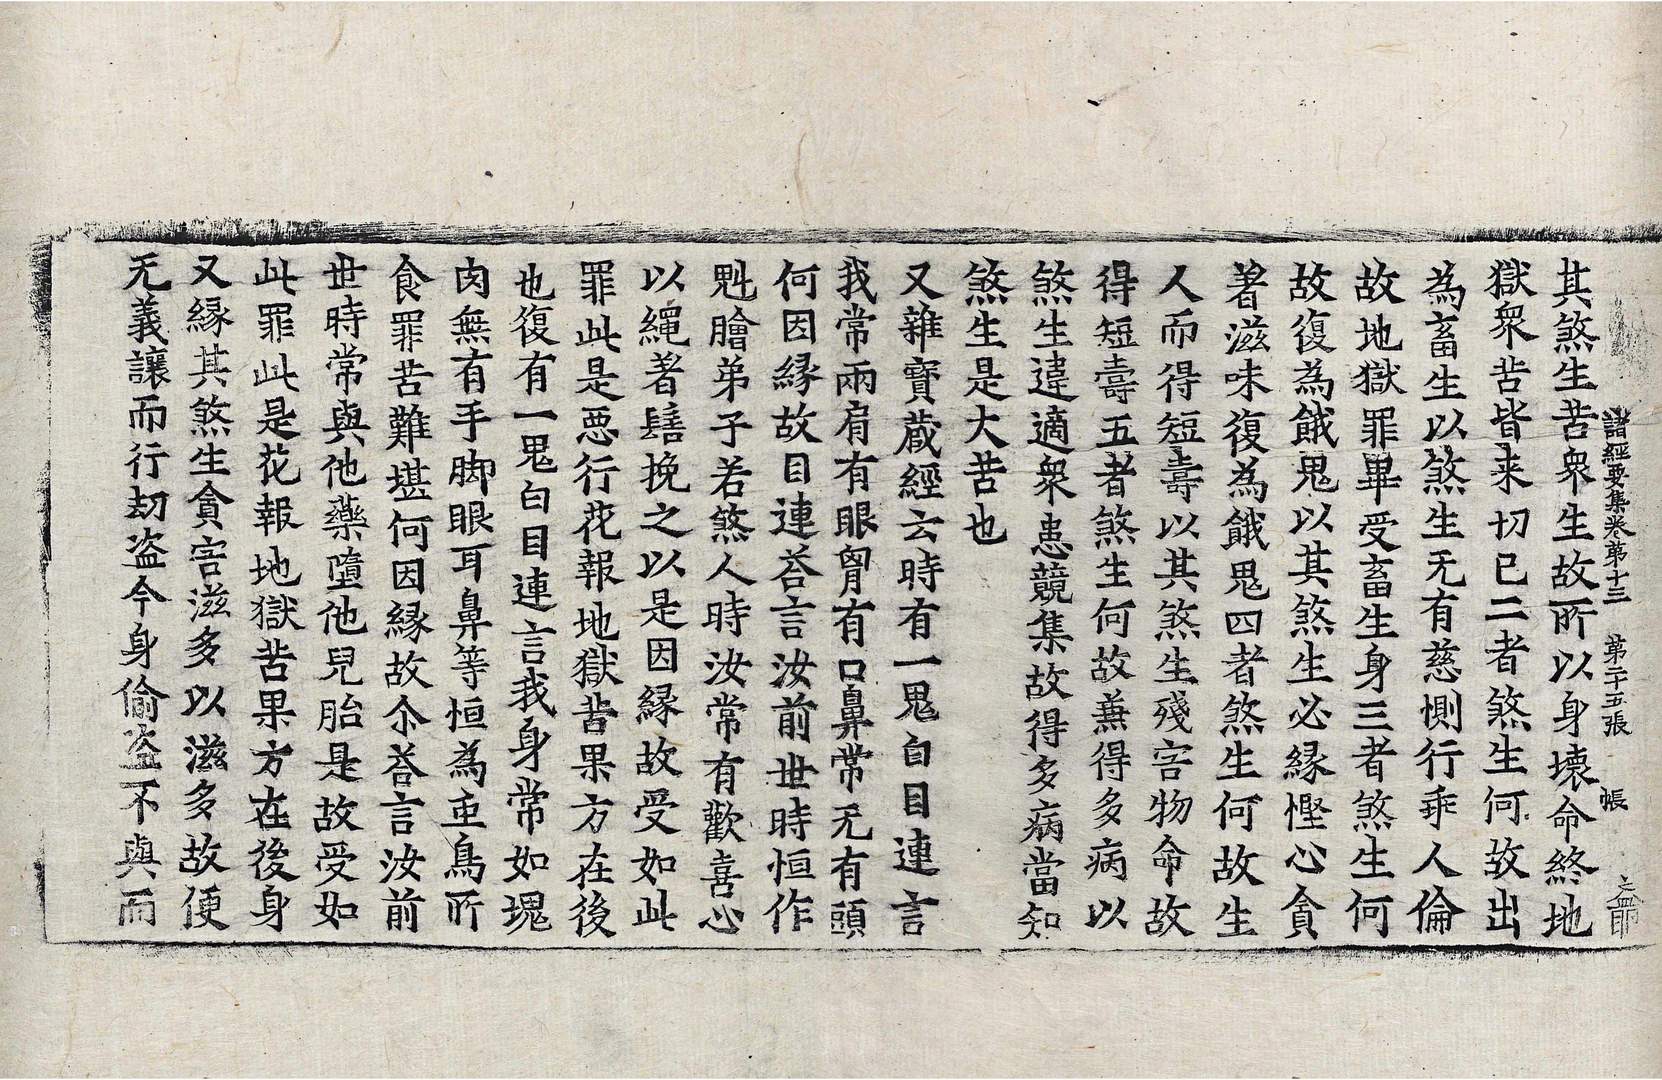 諸經要集卷第十三 第二十五張 帳
其煞生苦衆生故所以身壞命終地
獄衆苦皆来切已二者煞生何故出
為畜生以煞生无有慈惻行乖人倫
故地獄罪畢受畜生身三者煞生何
故復為餓鬼以其煞生必緣慳心貪
著滋味復為餓鬼四者煞生何故生
人而得短壽以其煞生殘害物命故
得短壽五者煞生何故兼得多病以
煞生違適衆患競集故得多病當知
煞生是大苦也
又雜寶藏經云時有一鬼白目連言
我常兩肩有眼胷有口鼻常无有頭
何因縁故目連荅言汝前世時恒作
魁膾弟子若煞人時汝常有歡喜心
以繩著髻挽之以是因縁故受如此
罪此是惡行花報地獄苦果方在後
也復有一鬼白目連言我身常如塊
肉無有手脚眼耳鼻等恒為虫鳥所
食罪苦難堪何因縁故尒荅言汝前
世時常與他藥墮他兒胎是故受如
此罪此是花報地獄苦果方在後身
又縁其煞生貪害滋多以滋多故便
无義讓而行劫盗今身偷盗不與而